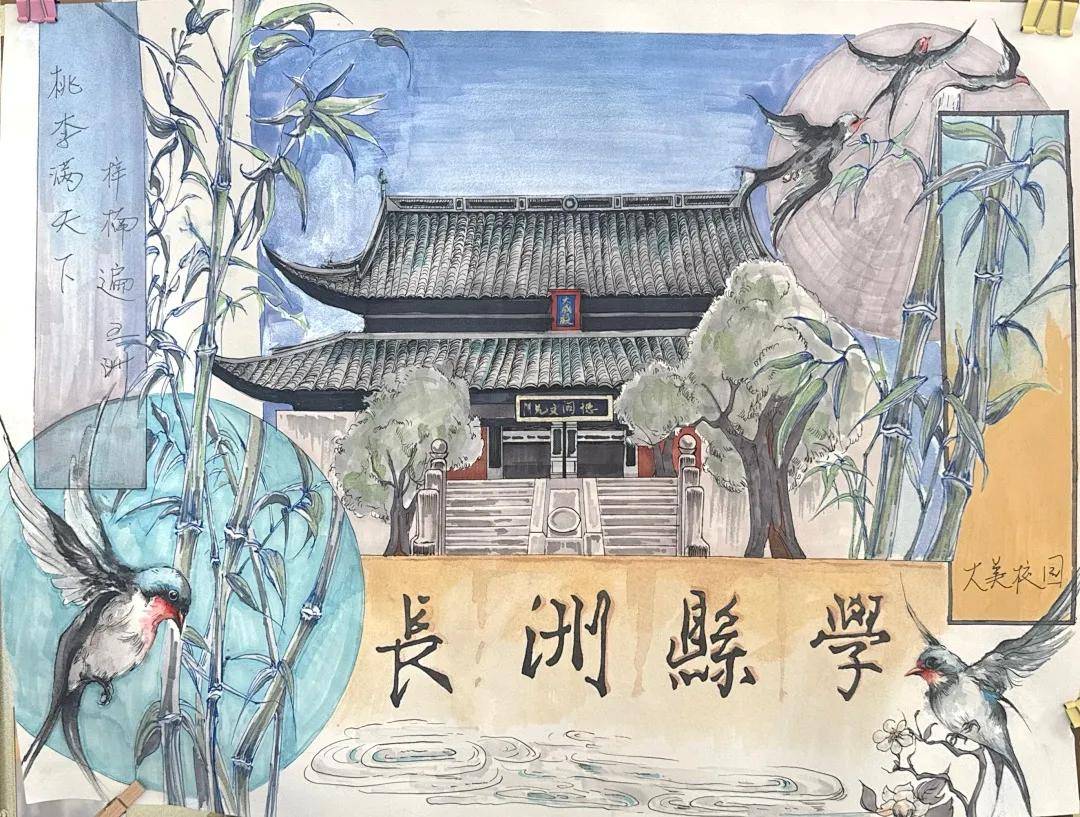 桃李满天下
梓楠遍五洲
大成殿
大美校园
長洲縣學